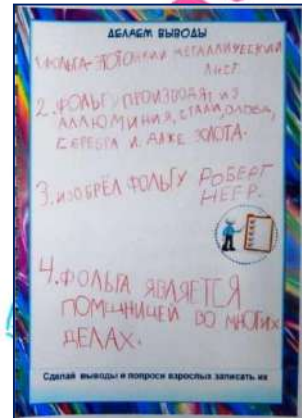 ДЕЛАЕМ ВЫВОДЫ
1. ФОЛЬГА - ЭТО ТОНКИЙ МЕТАЛЛИЧЕСКИЙ
ЛИСТ.
2. ФОЛЬГУ ПРОИЗВОДЯТ ИЗ
АЛЛЮМИНИЯ, СТАЛИ, ОЛОВА,
СЕРЕБРА И ДАЖЕ ЗОЛОТА.
3. ИЗОБРЁЛ ФОЛЬГУ РОБЕРТ
НЕЕР.
4. ФОЛЬГА ЯВЛЯЕТСЯ
ПОМЩНИЦЕЙ ВО МНОГИХ
ДЕЛАХ.
Сделай выводы и попроси взрослых записать их